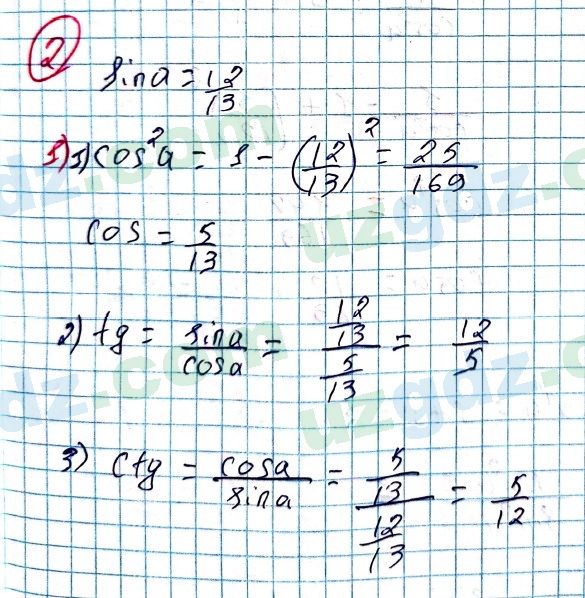 2
sina = 12/13
1) 1) cos²a = 1 - (12/13)² = 25/169
cos = 5/13
2) tg = sina/cosa = (12/13)/(5/13) = 12/5
3) ctg = cosa/sina = (5/13)/(12/13) = 5/12
uzgdz.com